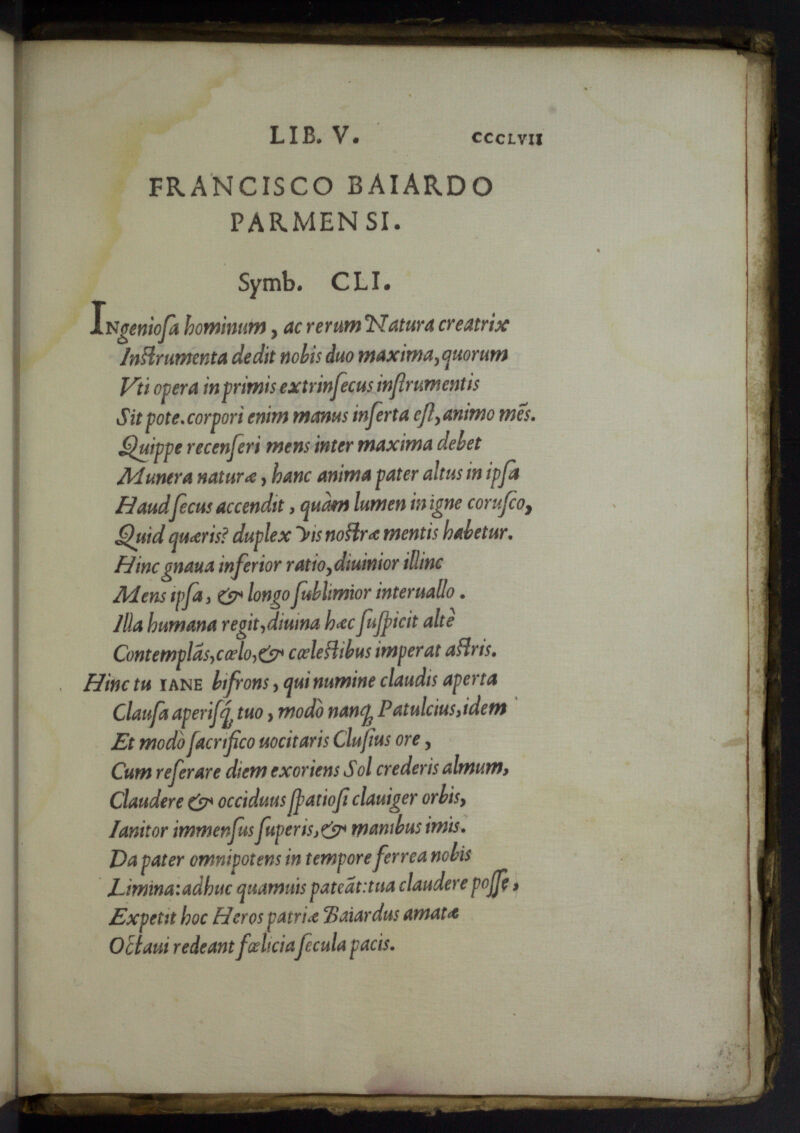 LIB. V. CCCLVII
FRANCISCO BAIARDO
PARMENSI.
Symb. CLI.
INgeniosa hominum, ac rerum Natura creatrix
Instrumenta dedit nobis duo maxima, quorum
Vti opera in primis extrinsecus instrumentis
Sit pote. corpori enim manus inserta est, animo mēs.
Quippe recenseri mens inter maxima debet
Munera naturæ, hanc anima pater altus in ipsa
Haud secus accendit, quàm lumen in igne corusco,
Quid quæris? duplex vis nostræ mentis habetur.
Hinc gnaua inferior ratio, diuinior illinc
Mens ipsa, & longo sublimior interuallo.
Illa humana regit, diuina hæc suspicit altè
Contemplās, cœlo, & cœlestibus imperat astris.
Hinc tu IANE bifrons, qui numine claudis aperta
Clausa aperisq; tuo, modò nanq; Patulcius, idem
Et modò sacrifico uocitaris Clusius ore,
Cum reserare diem exoriens Sol crederis almum,
Claudere & occiduus spatiosi clauiger orbis,
Ianitor immensus superis, & manibus imis.
Da pater omnipotens in tempore ferrea nobis
Limina: adhuc quamuis pateāt: tua claudere posse,
Expetit hoc Heros patriæ Baiardus amatæ
Octaui redeant fœlicia secula pacis.